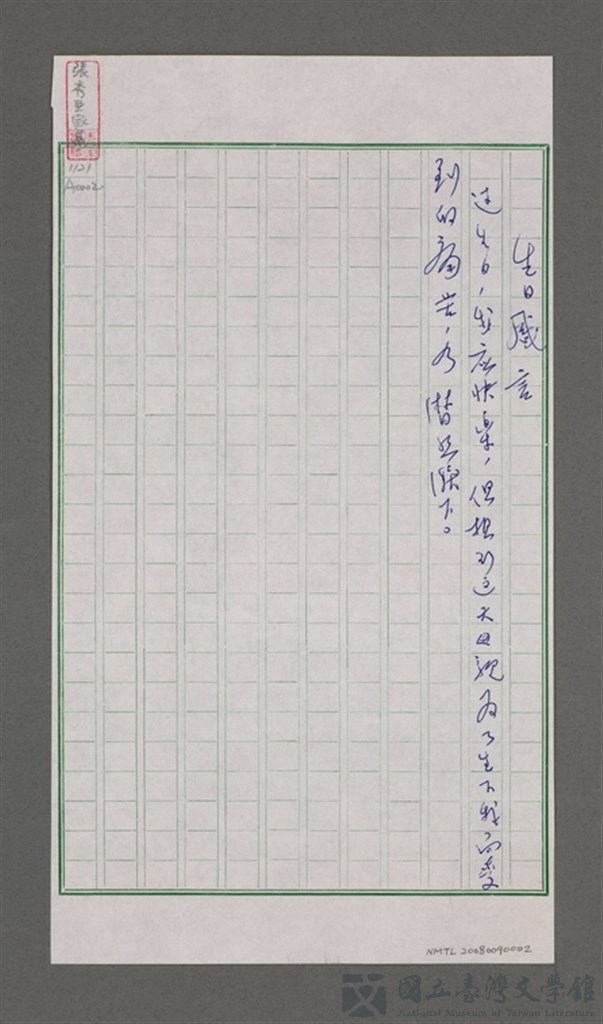 生日感言
過生日，我應快樂，但想到這天母親為了生下我而受
到的痛苦，乃潸然淚下。
張秀亞
1121
A0002
NMTL 20080090002
國立臺灣文學館
National Museum of Taiwan Literature